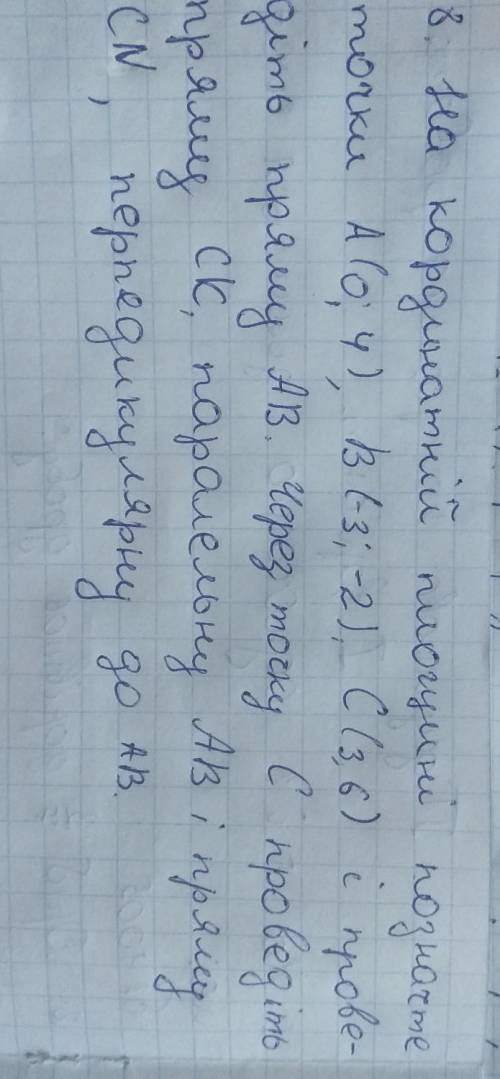 8. На кординатній площині позначте
точки А(0; 4), В(-3; -2), С(3, 6) і прове-
діть пряму АВ. Через точку С проведіть
пряму СК, паралельну АВ і пряму
CN, перпедикулярну до АВ.